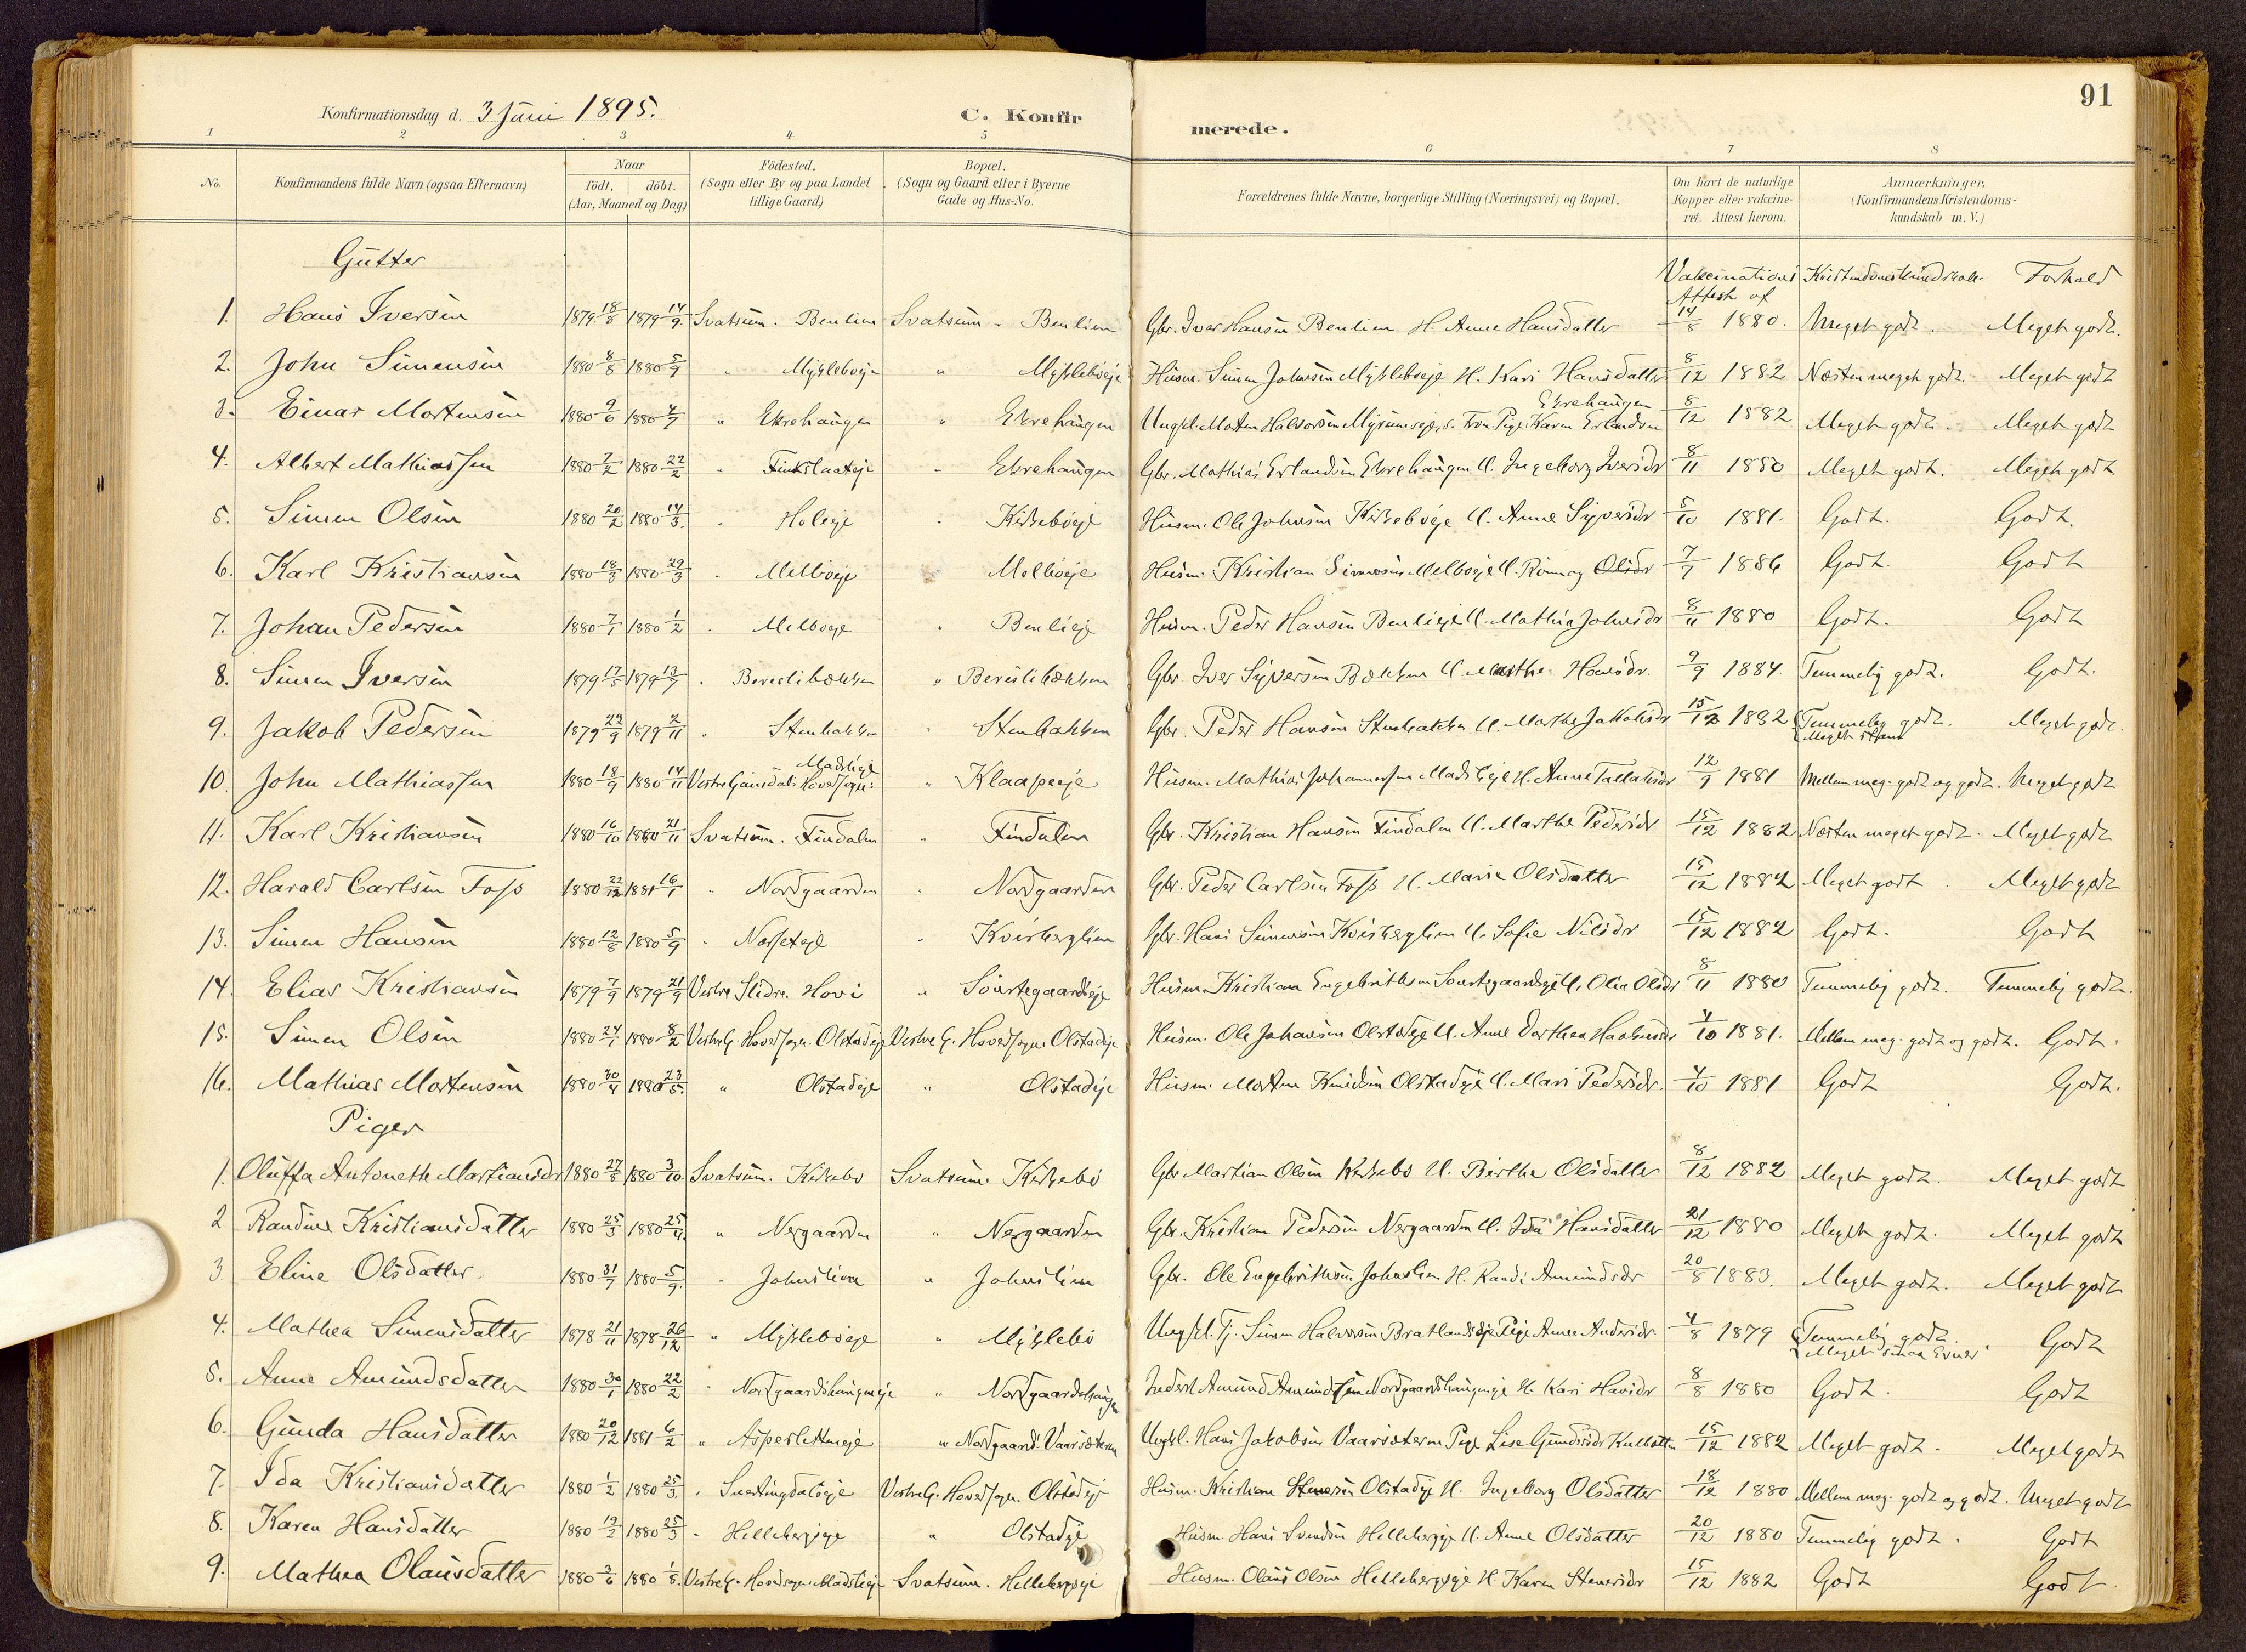 91
Konfirmationsdag d. 3 Juni 1895. C. Konfirmerede.
1 2 3 4 5 6 7 8
No. Konfirmandens fulde Navn (ogsaa Efternavn) Naar födt. döbt. (Aar, Maaned og Dag) Födested. (Sogn eller By og paa Landet tillige Gaard) Bopæl. (Sogn og Gaard eller i Byerne Gade og Hus-No. Forældrenes fulde Navne, borgerlige Stilling (Næringsvei) og Bopæl. Om havt de naturlige Kopper eller vakcineret. Attest herom. Anmærkninger, (Konfirmandens Kristendomskundskab m. V.)
Gutter Vakcinations Attest af Kristendomskundskab. Forhold
1. Hans Iversen 1879 18/8 1879 14/9 Svatsum. Benlien Svatsum. Benlien Gbr. Iver Hansen Benlien H. Anne Hansdatter 14/8 1880. Meget godt. Meget godt.
2. John Simensen 1880 8/8 1880 5/9 " Mykleböeje " Mykleböeje Husm. Simen Johnsen Mykleböeje H. Kari Hansdatter 8/12 1882 Næsten meget godt. Meget godt
3. Einar Mortensen 1880 9/6 1880 4/7 " Ekrehaugen " Ekrehaugen Ungk. Morten Halvorsen Pige Karen Erlandsen Ekrehaugen 8/12 1882 Meget godt. Meget godt
4. Albert Mathiassen 1880 7/2 1880 22/2 " Finkslaateje " Ekrehaugen Gbr. Mathias Erlandsen Ekrehaugen H. Ingeborg Iversdr 8/11 1880 Meget godt. Meget godt
5. Simen Olsen 1880 20/2 1880 14/3. " Holeje " Kirkeböeje Husm. Ole Johnsen Kirkeböeje H. Anne Syversdr 5/10 1881. Godt. Godt.
6. Karl Kristiansen 1880 18/3 1880 29/3 " Melböeje Melböeje Husm. Kristian Simensen Melböeje H. Rönnog Olsdr 7/7 1886 Godt. Godt
7. Johan Pedersen 1880 7/1 1880 1/2 " Melböeje " Benlieje Husm. Peder Hansen Benlieje H. Mathia Johnsdr 8/11 1880 Godt. Godt
8. Simen Iversen 1879 17/5 1879 13/7 " Bereslibækken " Bereslibækken Gbr. Iver Syversen Bækken H. Marthe Hansdr. 9/9 1884. Temmelig godt. Godt.
9. Jakob Pedersen 1879 29/9 1879 2/11 " Stenbakken " Stenbakken Gbr. Peder Hansen Stenbakken H. Marthe Jakobsdr 15/12 1882 Temmelig godt. Meget Meget godt.
10. John Mathiassen 1880 18/9 1880 14/11 Vestre Gausdals Hovedsogn: Madslieje " Klaapeeje Husm. Mathias Johannessen Madslieje H. Anne Tallaksdr 12/9 1881 Mellem meg. godt og godt. Meget godt
11. Karl Kristiansen 1880 16/10 1880 21/11 Svatsum. Findalen " Findalen Gbr. Kristian Hansen Findalen H. Marthe Pedersdr 15/12 1882 Næsten meget godt. Meget godt
12. Harald Carlsen Foss 1880 22/12 1881 16/1 " Nordgaarden " Nordgaarden Gbr. Peder Carlsen Foss H. Marie Olsdatter 15/12 1882 Meget godt. Meget godt
13. Simen Hansen 1880 12/8 1880 5/9 " " Kvisberglien Gbr. Hans Simensen Kvisberglien H. Sofie Nilsdr 15/12 1882 Godt. Godt
14. Elias Kristiansen 1879 7/9 1879 21/9 Vestre Slidre. Hovi " Husm. Kristian Engebrithsen H. Olia Olsdr 8/11 1880 Temmelig godt. Temmelig godt.
15. Simen Olsen 1880 24/1 1880 8/2 Vestre G. Hovedsogn. Olstadeje Vestre G. Hovedsogn. Olstadeje Husm. Ole Johansen Olstadeje H. Anne Dorthea 4/10 1881. Mellem meg. godt og godt. Godt.
16. Mathias Mortensen 1880 30/4 1880 23/5. " Olstadeje " Olstadeje Husm. Morten Knudsen Olstadeje H. Mari Pedersdr. 4/10 1881 Godt Godt.
Piger
1. Oluffa Antonette Martiansdr 1880 27/8 1880 3/10 Svatsum. Kirkebö Svatsum. Kirkebö Gbr Martian Olsen Kirkebö H. Birthe Olsdatter 8/12 1882 Meget godt. Meget godt
2 Randine Kristiansdatter 1880 25/3 1880 25/4. " Nergaarden " Nergaarden Gbr. Kristian Pedersen Nergaarden H. Ida Hansdatter 21/12 1880 Meget godt. Meget godt
3. Eline Olsdatter. 1880 31/7 1880 5/9. " Johnslien " Johnslien Gbr. Ole Engebrithsen Johnslien H. Randi Amundsdr 20/8 1883. Meget godt. Meget godt
4. Mathea Simensdatter 1878 21/11 1878 26/12 " Mykleböeje " Myklebö Ungkl. Tj. Simen Halvorsen Bratlandseje Pige Anne Andersdr 4/8 1879 Temmelig godt. Meget smaa Evner Godt
5. Anne Amundsdatter 1880 30/1 1880 22/2 " Nordgaardshaugeneje " Nordgaardshaugen Inderst Amund Amundsen Nordgaardshaugeneje H. Kari Hansdr 8/8 1880 Godt. Godt
6. Gunda Hansdatter 1880 20/12 1881 6/2 " Asperletteneje " Nordgaards Vaarsæteren Ungkl. Hans Jakobsen Vaarsæteren Pige Lise Gundersdr 15/12 1882 Meget godt. Meget godt
7. Ida Kristiansdatter 1880 1/2 1880 25/3. " Svertingdalseje Vestre G. Hovedsogn. Olstadeje Husm. Kristian Stenersen Olstadeje H. Ingeborg Olsdatter 18/12 1880 Mellem meg. godt og godt. Meget godt
8. Karen Hansdatter 1880 19/2 1880 25/3 " Hellebergeje " Olstadeje Husm. Hans Svendsen Hellebergeje H. Anne Olsdatter 20/12 1880 Temmelig godt. Godt
9. Mathea Olausdatter 1880 3/6 1880 1/8. Vestre G. Hovedsogn. Madslieje Svatsum. Hellebergseje Husm. Olaus Olsen Hellebergseje H. Karen Stenersdr 15/12 1882 Godt Godt.